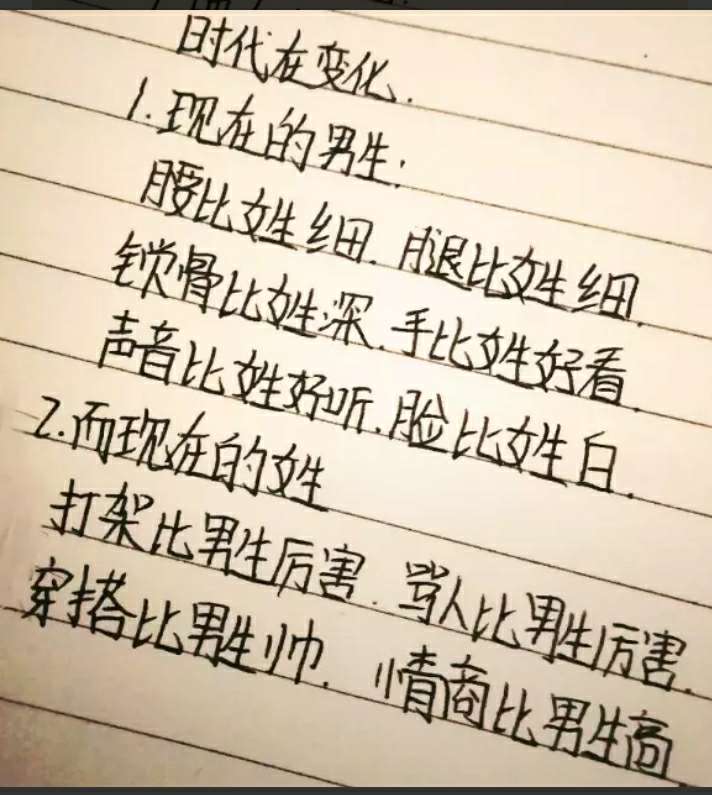 时代在变化.
1.现在的男生:
腰比女生细.腿比女生细.
锁骨比女生深.手比女生好看.
声音比女生好听.脸比女生白.
2.而现在的女生
打架比男生厉害.骂人比男生厉害.
穿搭比男生帅.情商比男生高